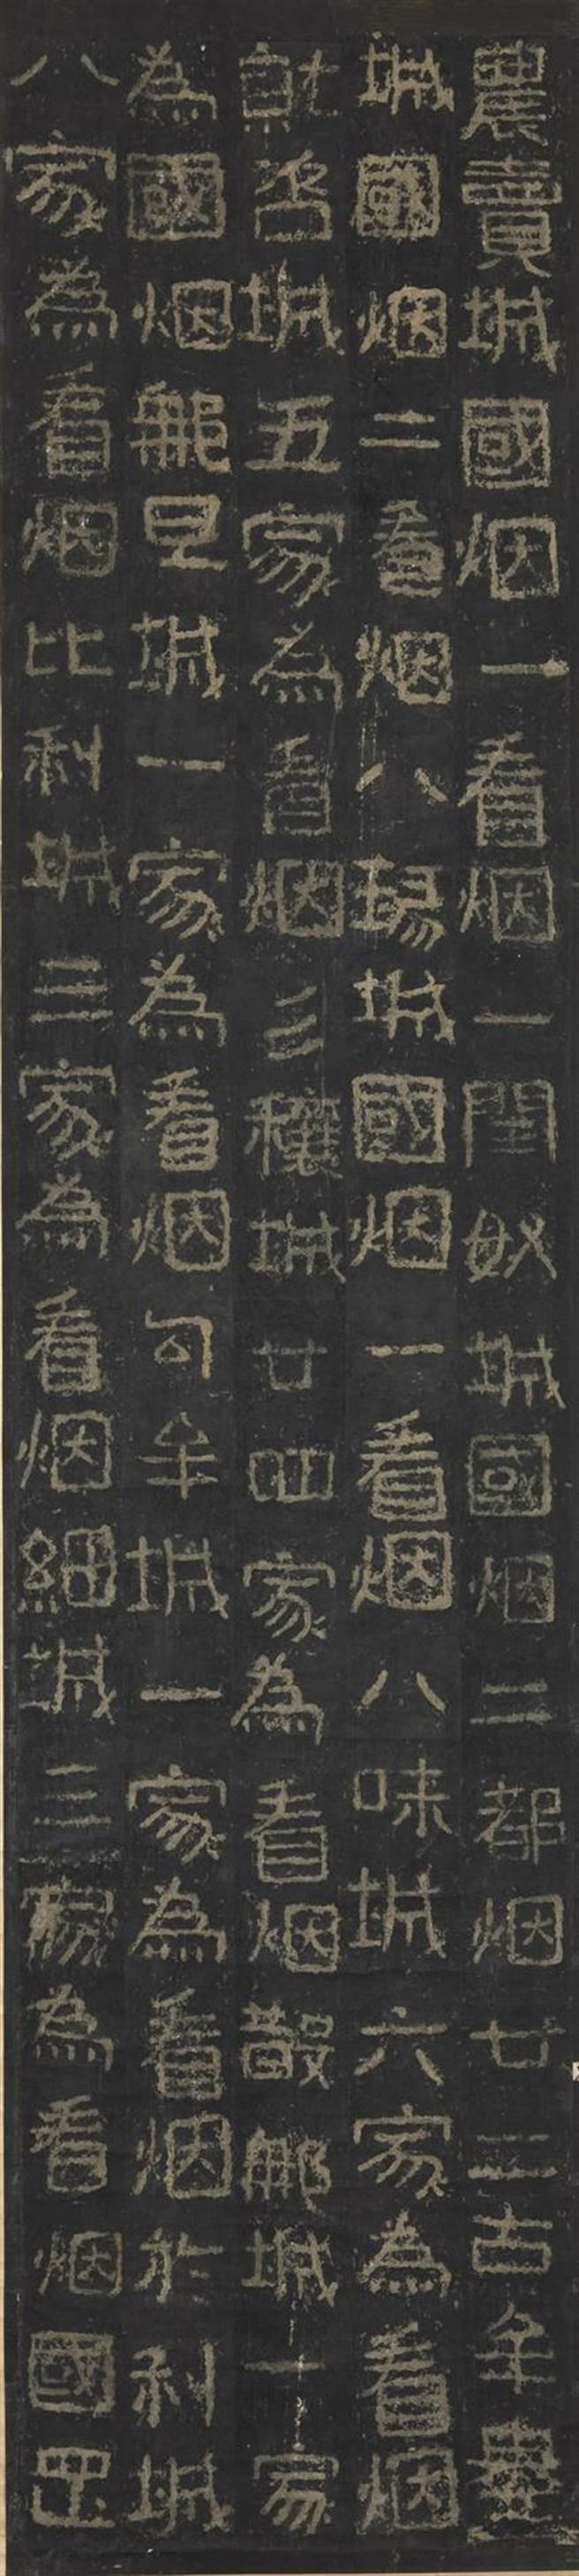 農賣城國烟一看烟一閏奴城國烟二都烟廿二古牟婁
城國烟二看烟八瑑城國烟一看烟八味城六家為看烟
就咨城五家為看烟彡穰城廿四家為看烟散那城一家
為國烟那旦城一家為看烟勾牟城一家為看烟於利城
八家為看烟比利城三家為看烟細城三家為看烟國罡